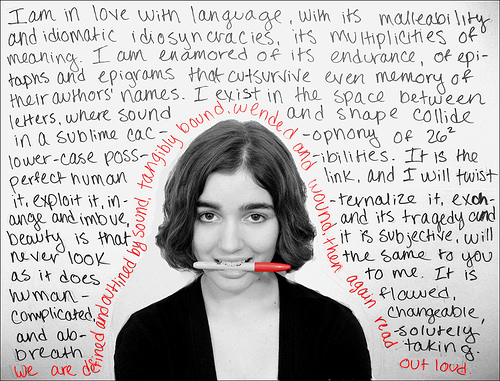 I am in love with language, with its malleability
and idiomatic idiosyncracies, its multiplicities of
meaning. I am enamored of its endurance, of epi-
taphs and epigrams that outsurvive even memory of
their authors' names. I exist in the space between
letters, where sound and shape collide
in a sublime cac- -ophony of 26²
lower-case poss- -ibilities. It is the
perfect human link, and I will twist
it, exploit it, in- -ternalize it, exch-
ange and imbue, and its tragedy and
beauty is that it is subjective, will
never look the same to you
as it does to me. It is
human - flawed,
complicated, changeable,
and ab- -solutely
breath taking.
we are defined and outlined by sound, tangibly bound. wended and wound then again read out loud.